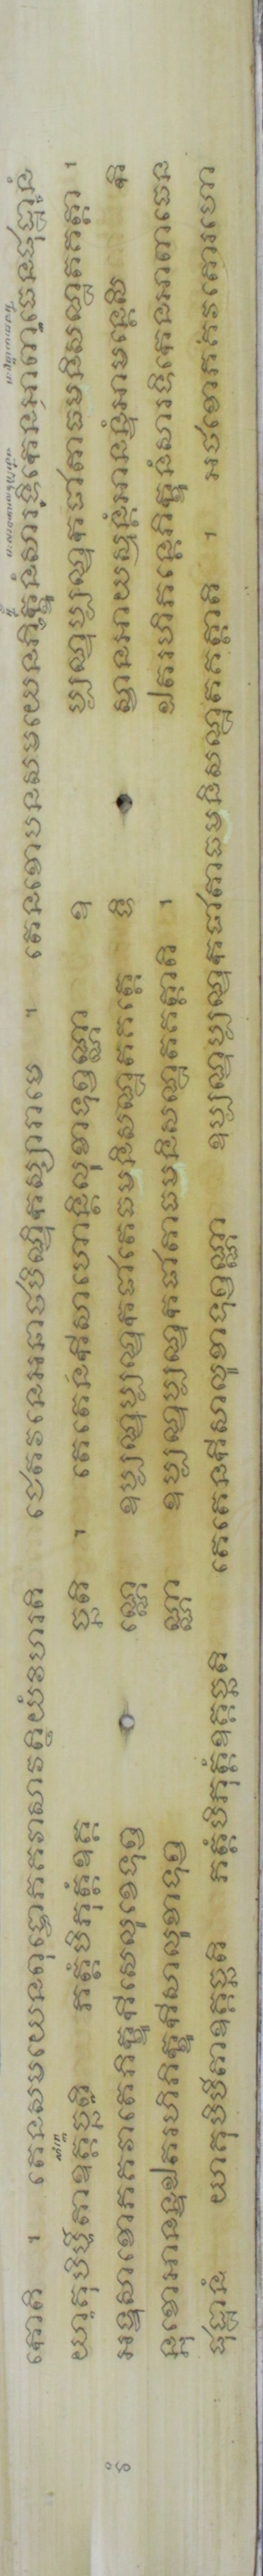 កោតិ ។ តេនសមយេនពុទ្ធោភគវាសាវត្ថិយំវិហរតិ ជេតវនេអនាថបិណ្ឌិកស្សារាមេ ។ តេនខោបនសមយេនភិក្ខូនំសារទិកេនអាពាធេនផុដ្ឋានំ
យាគុបិបីតាឧគ្គច្ឆតិ ភត្តំបិភុត្តំឧគ្គ ច្ឆតិ ។ តេតេនកីសាហោន្តិលុខាទុព្វណ្ណា ឧ ប្បណ្ឌុប្បណ្ឌុកជាតាធមនិសណ្ឋតកត្តា ។
អទ្ទសាខោភគវាតេភិក្ខូកីសេលូខេទុព្វ ណ្ណេ ឧប្បណ្ឌុប្បណ្ឌុកជាតេធមនិសណ្ឋតកត្តេ ទិ ស្វានអាយស្មន្តំអានន្ទំអាមន្តេសិ កិ
ន្នុខោអានន្ទឯតរហិភិក្ខូកីសាលូខាទុព្វ ណ្ណា ឧប្បណ្ឌុប្បណ្ឌុកជាតាធមនិសណ្ឋតកត្តាតិ ។ ឯតរហិភន្តេភិក្ខូនំសារទិកេនអាពាធេន
ផុដ្ឋានំ យាគុបិបីតាឧគ្គច្ឆតិ ភត្តំបិភុត្តំឧគ្គច្ឆតិ តេតេនកីសាលូខាទុព្វណ្ណា ឧប្បណ្ឌុប្បណ្ឌុកជាតាធមនិសណ្ឋតកត្តាតិ ។ អថខោភគវតោរហោ